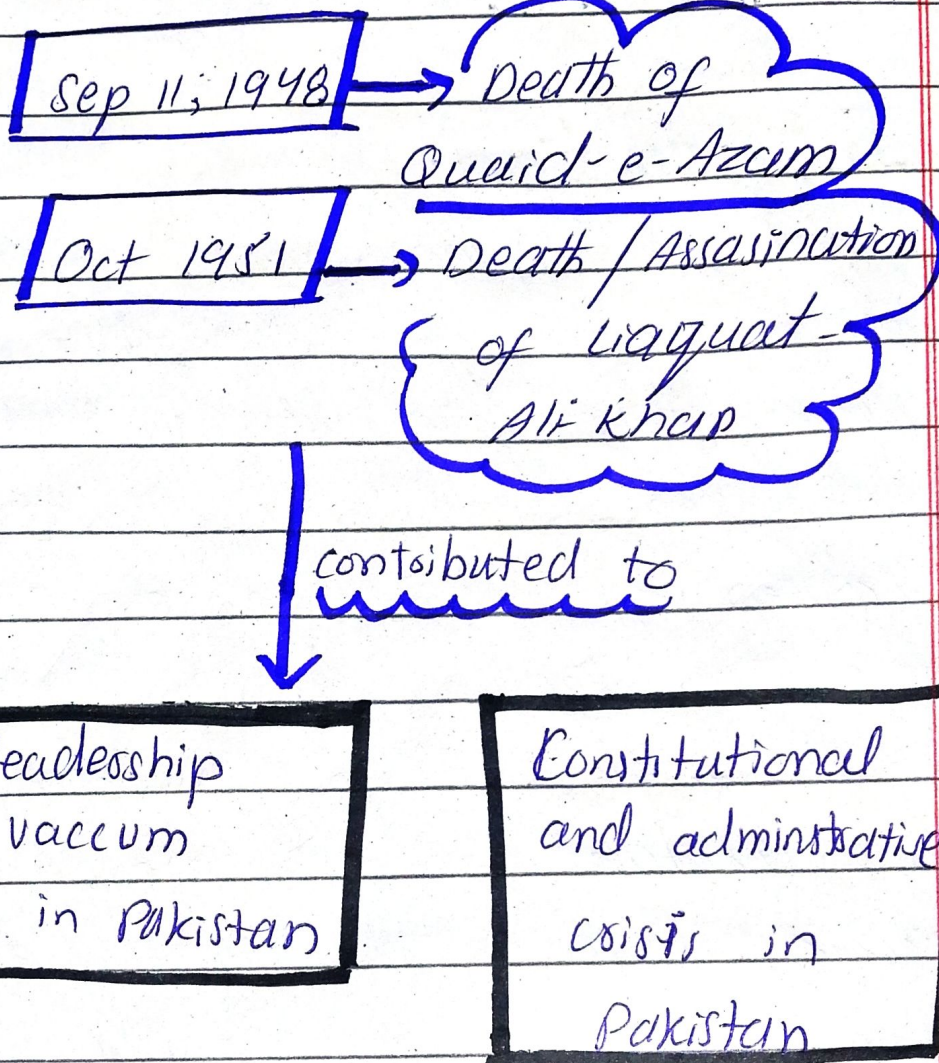 Sep 11, 1948
Death of
Quaid-e-Azam
Oct 1951
Death / Assasination
of Liaquat-
Ali Khan
contributed to
eadership
vaccum
in Pakistan
Constitutional
and adminstrative
crisis in
Pakistan